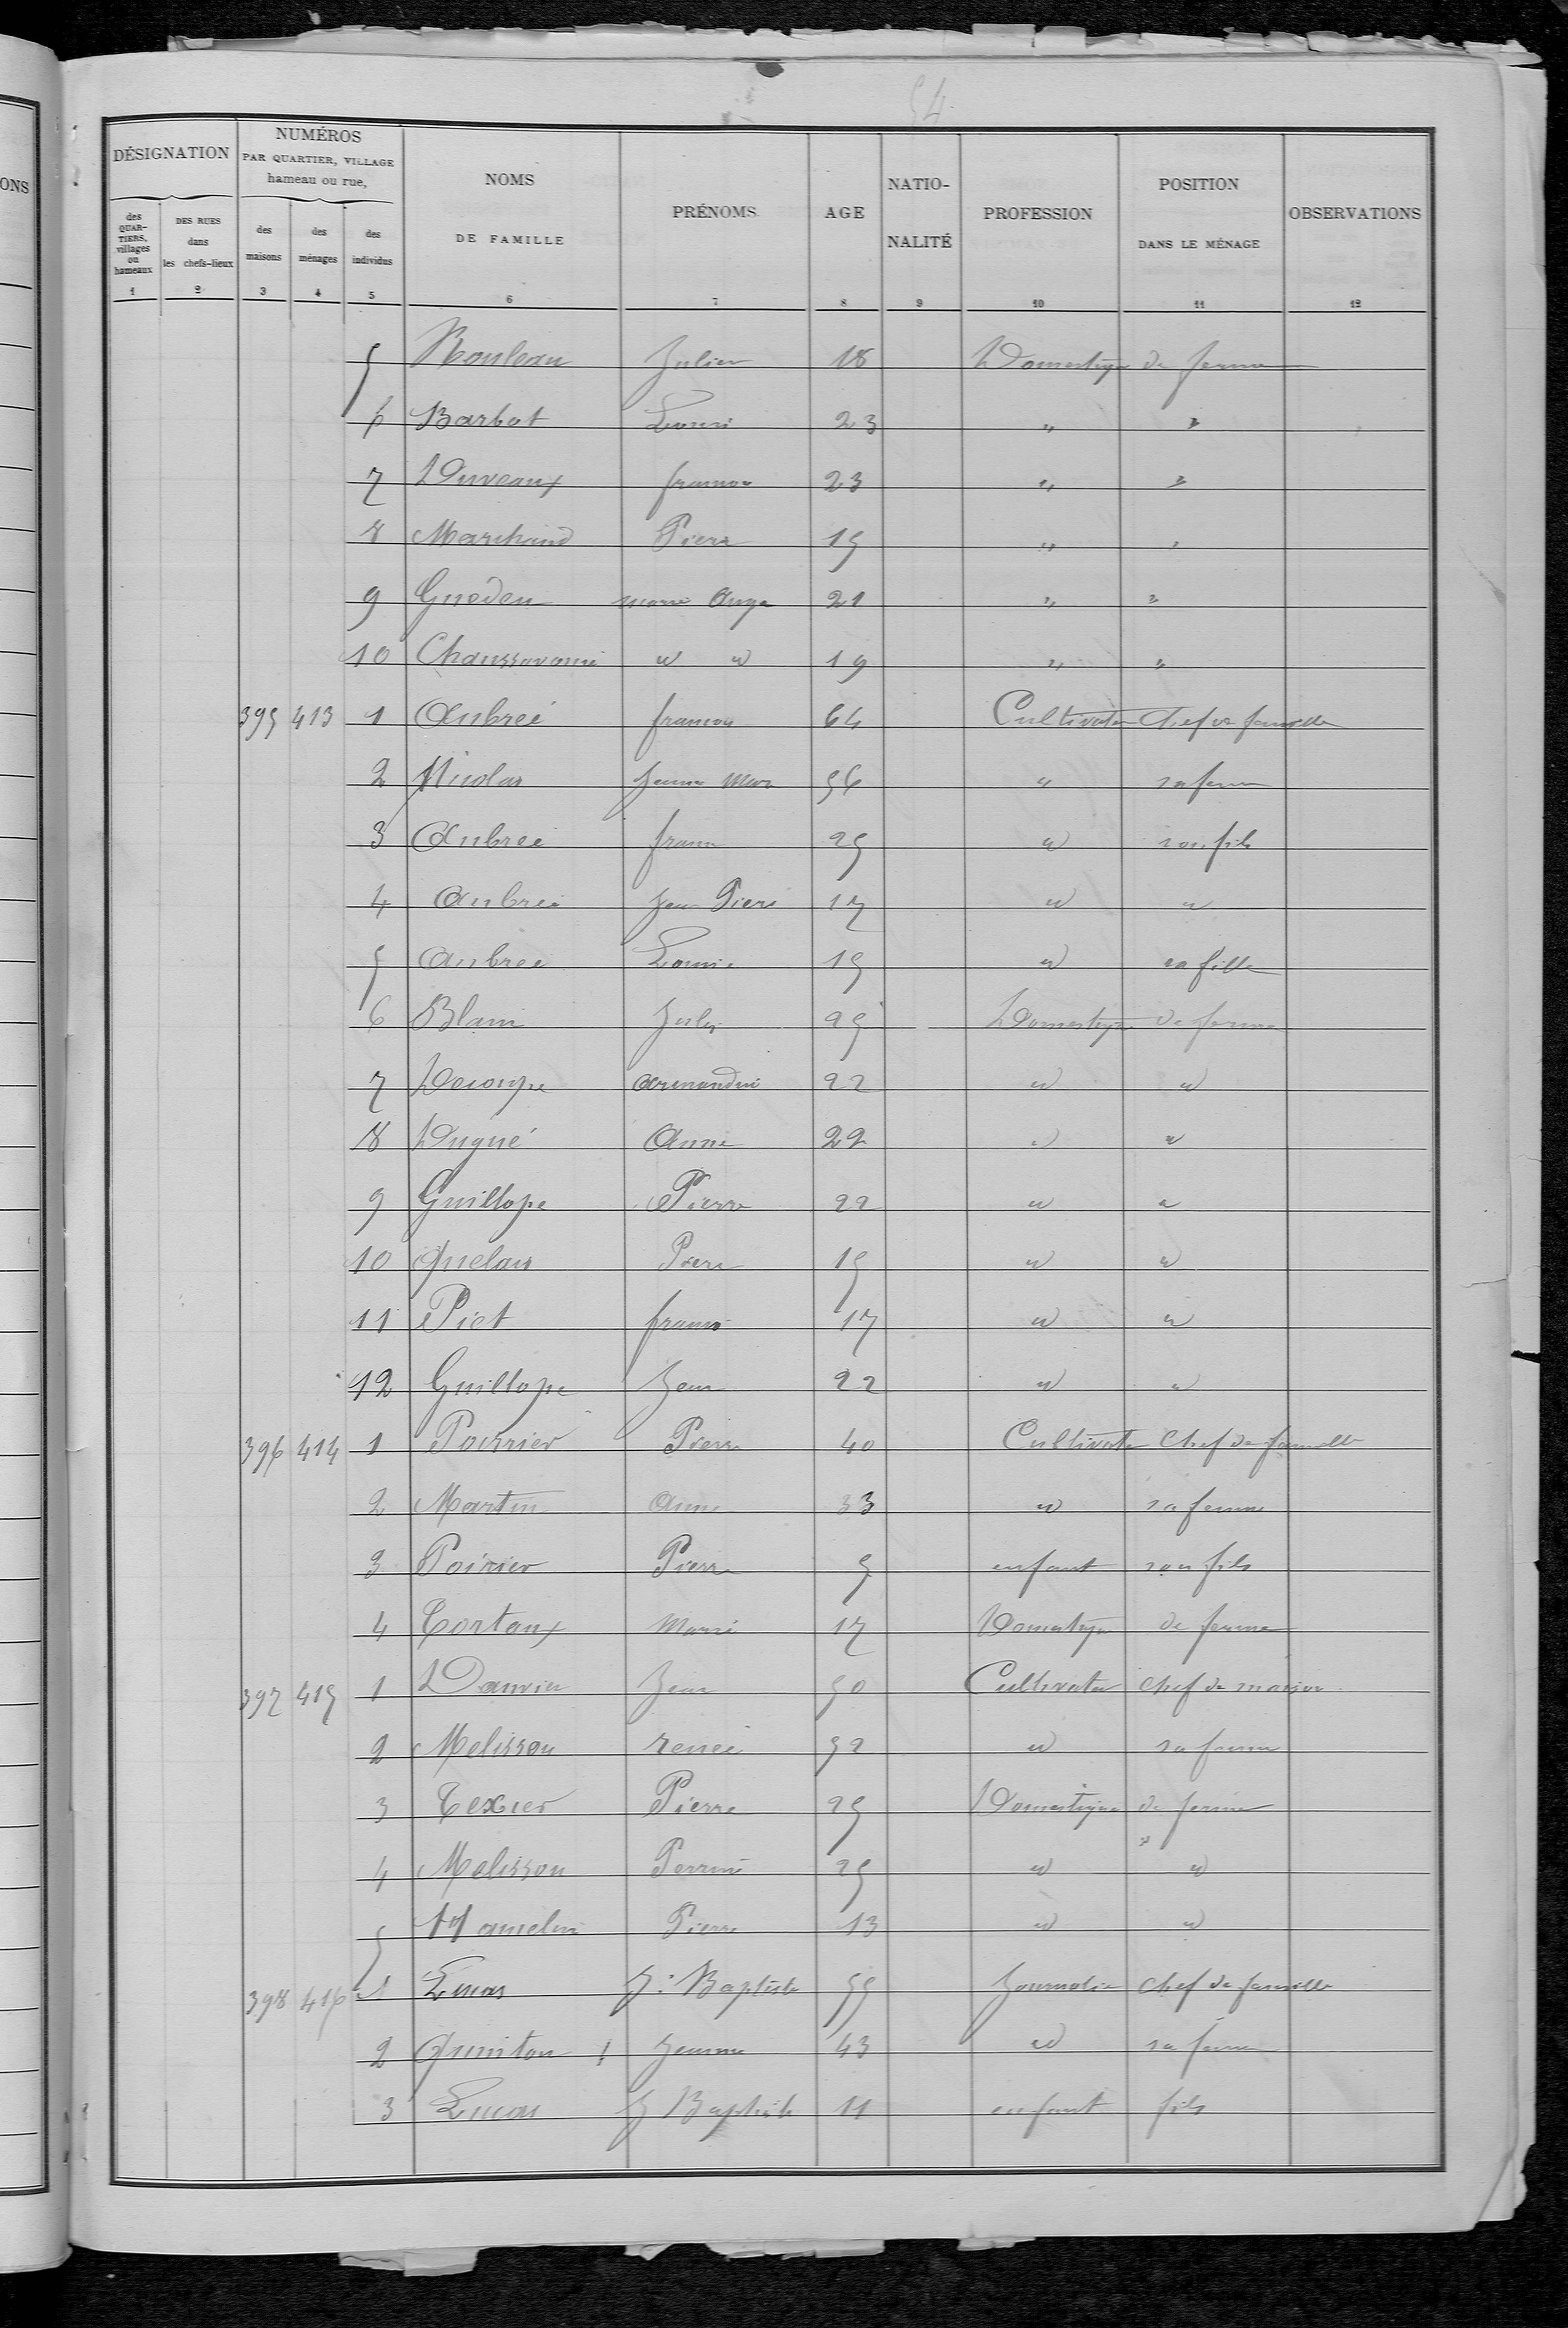 54
ONS
DÉSIGNATION
NUMÉROS
PAR QUARTIER, VILLAGE
hameau ou rue,
NOMS
DE FAMILLE
PRÉNOMS
AGE
NATIO-
NALITÉ
PROFESSION
POSITION
DANS LE MÉNAGE
OBSERVATIONS
des
QUAR-
TIERS,
villages
ou
hameaux
DES RUES
dans
les chefs-lieux
des
maisons
des
ménages
des
individus
1 2 3 4 5 6 7 8 9 10 11 12
5 Rouleau Julien 18 Domestique de ferme
6 Barbot Louis 23 " "
7 Duveaux francois 23 " "
8 Marchand Pierre 15 " "
9 Guodeu marie Ange 21 " "
10 " " 19 " "
395 413 1 Aubreé francois 64 Cultivateur Chef de famille
2 Nicolas Jeanne Marie 56 " sa femme
3 Aubreé franc 25 " son fils
4 Aubreé Jean Pierre 17 " "
5 Aubree Louise 15 " sa fille
6 Blain Jules 25 Domestique de ferme
7 Decoupe Armandine 22 " "
8 Dugué Anne 22 " "
9 Guillope Pierre 22 " "
10 Quelais Pierre 15 " "
11 Piet francois 17 " "
12 Guillope Jean 22 " "
396 414 1 Poirrier Pierre 40 Cultivateur Chef de famille
2 Martin Anne 33 " sa femme
3 Poirier Pierre 5 enfant son fils
4 Tortaux Marie 17 Domestique de ferme
397 415 1 Danvier Jean 50 Cultivateur Chef de maison
2 Melisson renée 52 " sa femme
3 Texier Pierre 25 Domestique de ferme
4 Melisson Perrine 25 " "
5 Hamelin Pierre 13 " "
398 416 1 Lucas J: Baptiste 55 Journalier Chef de famille
2 Quinton Jeanne 43 " sa femme
3 Lucas J Baptiste 11 enfant fils